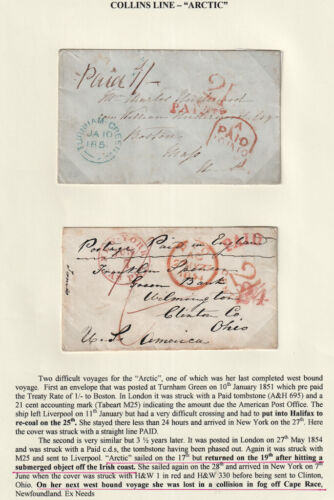 COLLINS LINE – "ARCTIC"
Paid 1/-
21
PAID
TURNHAM-GREEN
JA 10
1851
PAID
Boston
Mass
U. S.
Postage Paid in England
PAID
Franklin
Green Bank
Wilmington
Clinton Co.
Ohio
U. S. America
Two difficult voyages for the "Arctic", one of which was her last completed west bound voyage. First an envelope that was posted at Turnham Green on 10th January 1851 which pre paid
the Treaty Rate of 1/- to Boston. In London it was struck with a Paid tombstone (A&H 695) and a
21 cent accounting mark (Tabeart M25) indicating the amount due the American Post Office. The
ship left Liverpool on 11th January but had a very difficult crossing and had to put into Halifax to
re-coal on the 25th. She stayed there less than 24 hours and arrived in New York on the 27th. Here
the cover was struck with a straight line PAID.
The second is very similar but 3 ½ years later. It was posted in London on 27th May 1854
and was struck with a Paid c.d.s, the tombstone having been phased out. Again it was struck with
M25 and sent to Liverpool. "Arctic" sailed on the 17th but returned on the 19th after hitting a
submerged object off the Irish coast. She sailed again on the 28th and arrived in New York on 7th
June when the cover was struck with H&W 1 in red and H&W 330 before being sent to Clinton,
Ohio. On her next west bound voyage she was lost in a collision in fog off Cape Race,
Newfoundland. Ex Needs